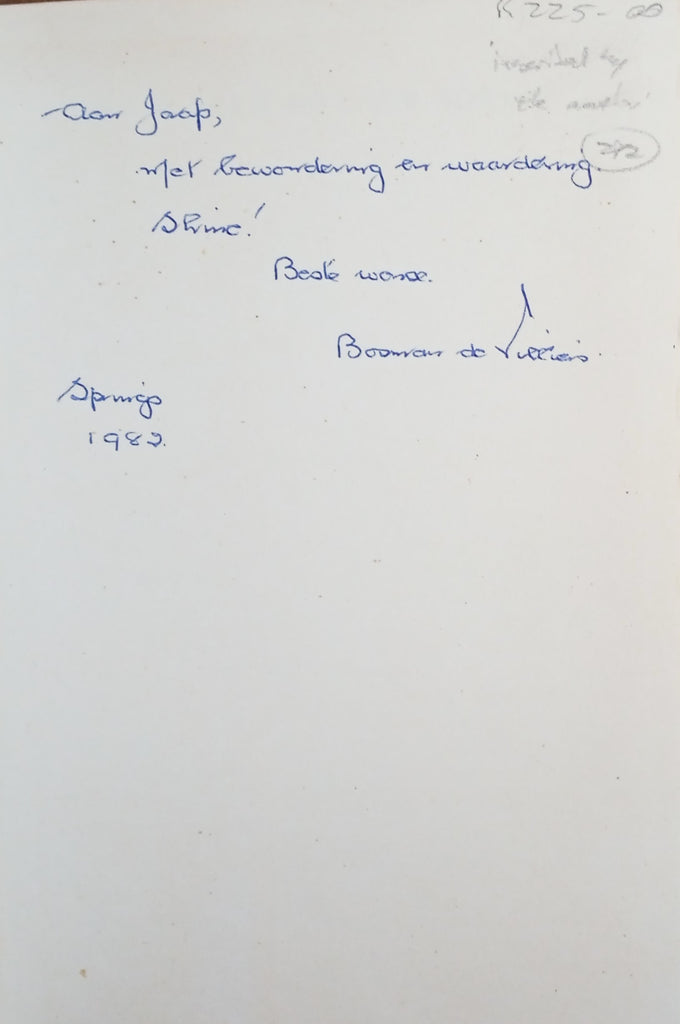 R 225-00
inscribed by
the author
Aan Jaap,
Met bewondering en waardering.
Shine!
Beste wense.
Boorman de Villiers
Springs
1982.